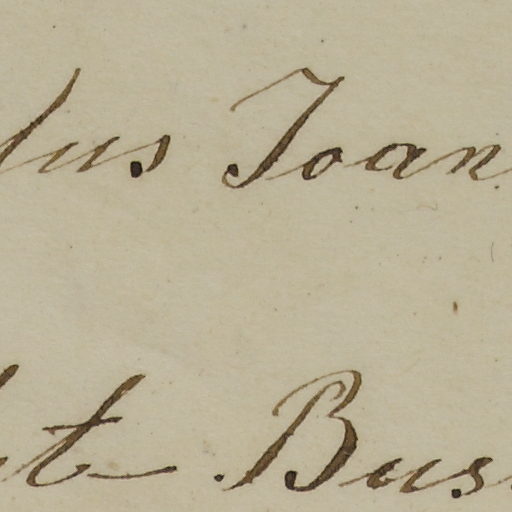 lus Joan
t Bus